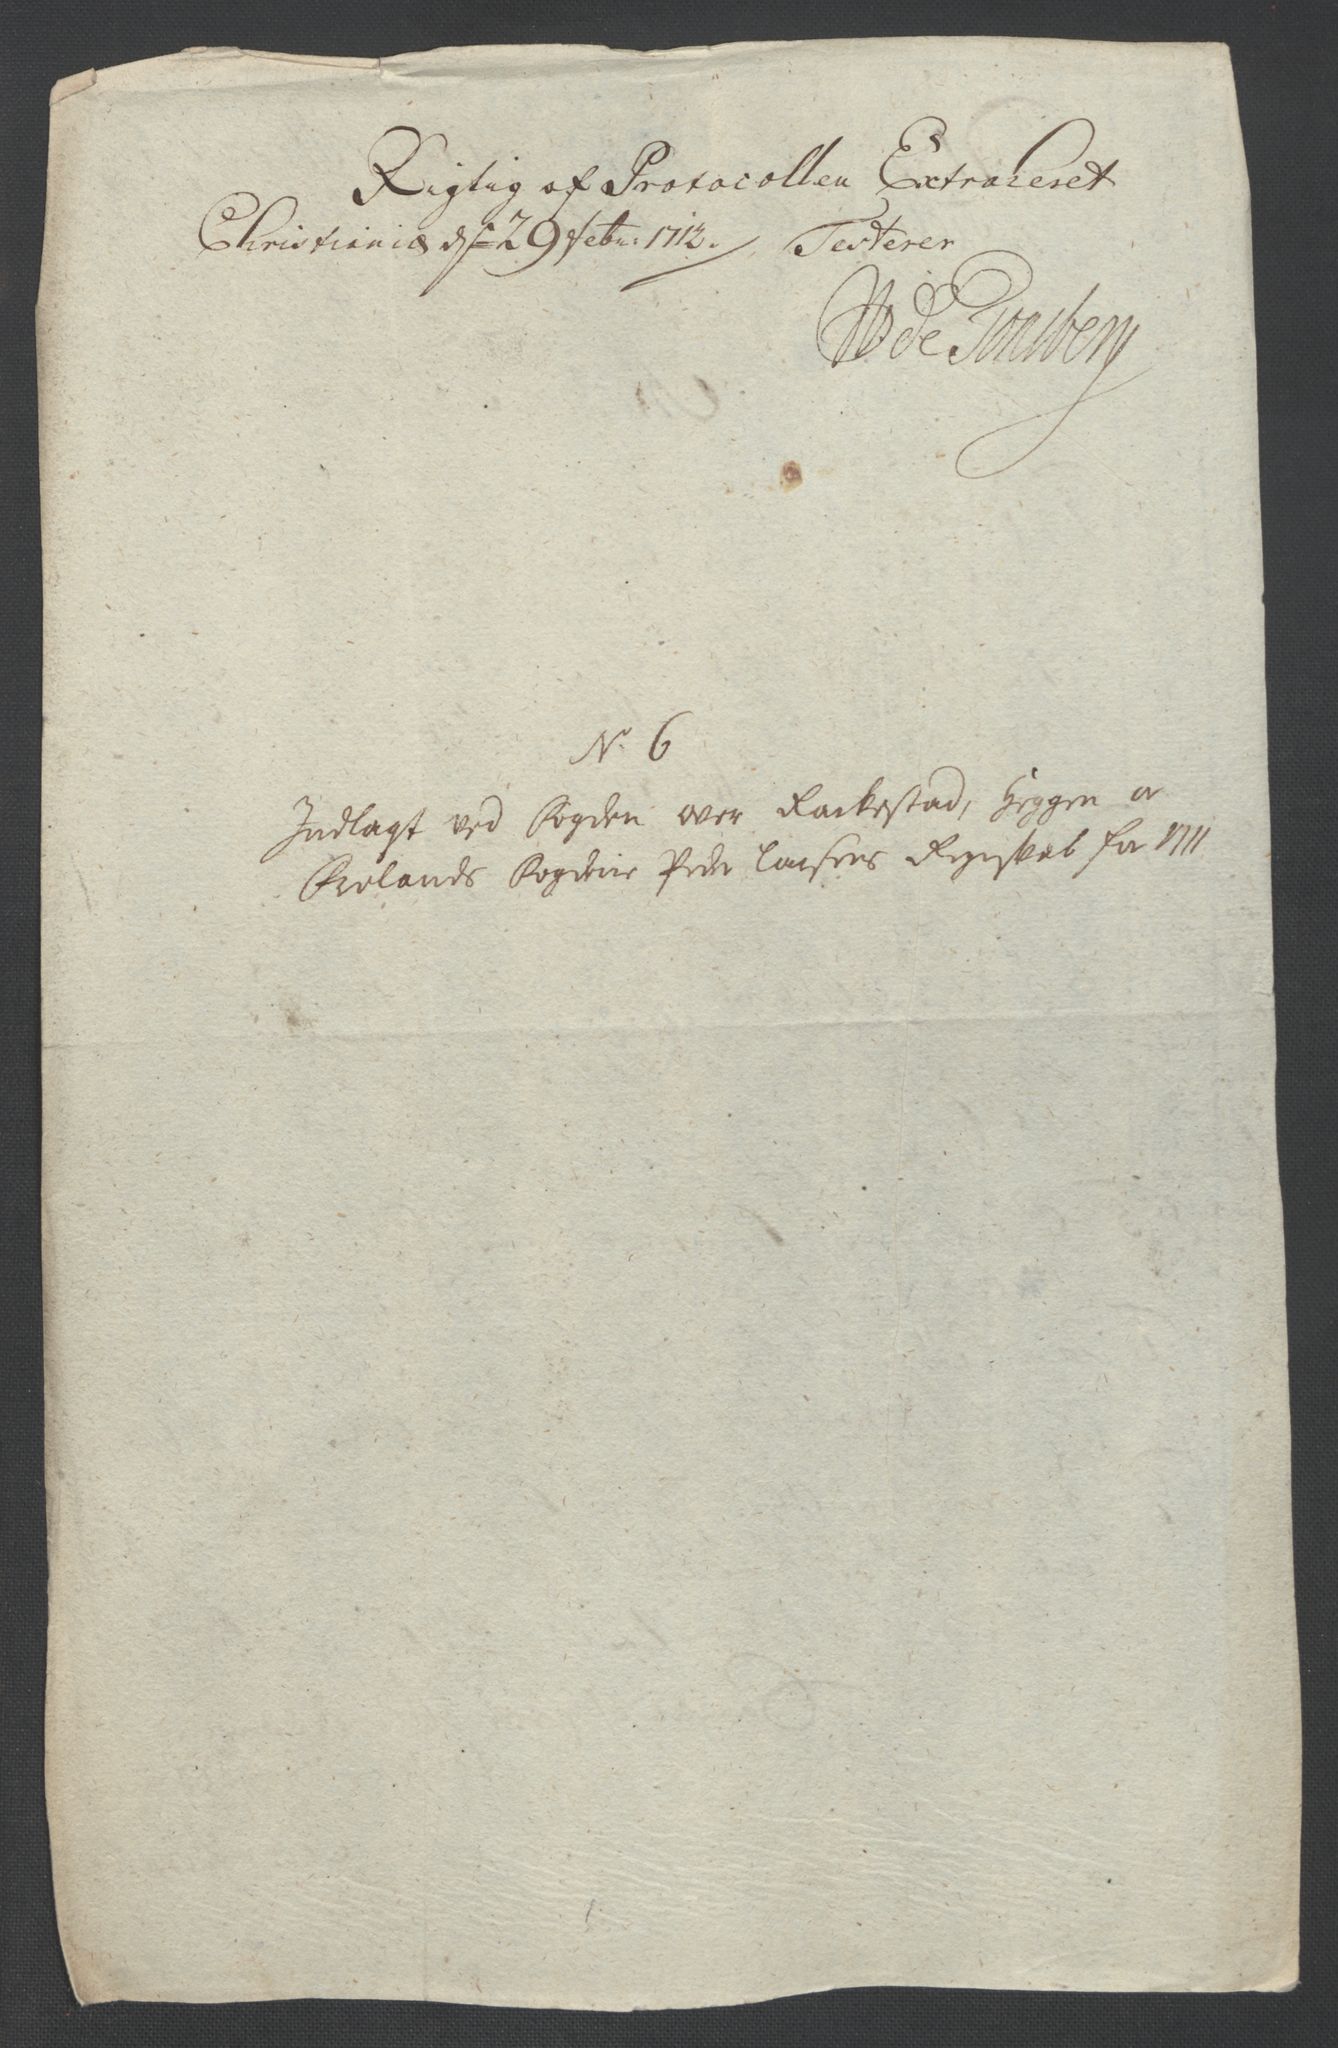 Rigtig af Protocollen Extraheret
Christiania d: 29 febr: 1712. Testerer
N. 6
Indlagt ved Fogden over Rackestad, Heggen o
Frølands Fogderie Peder Larsens Regnskab for 1711